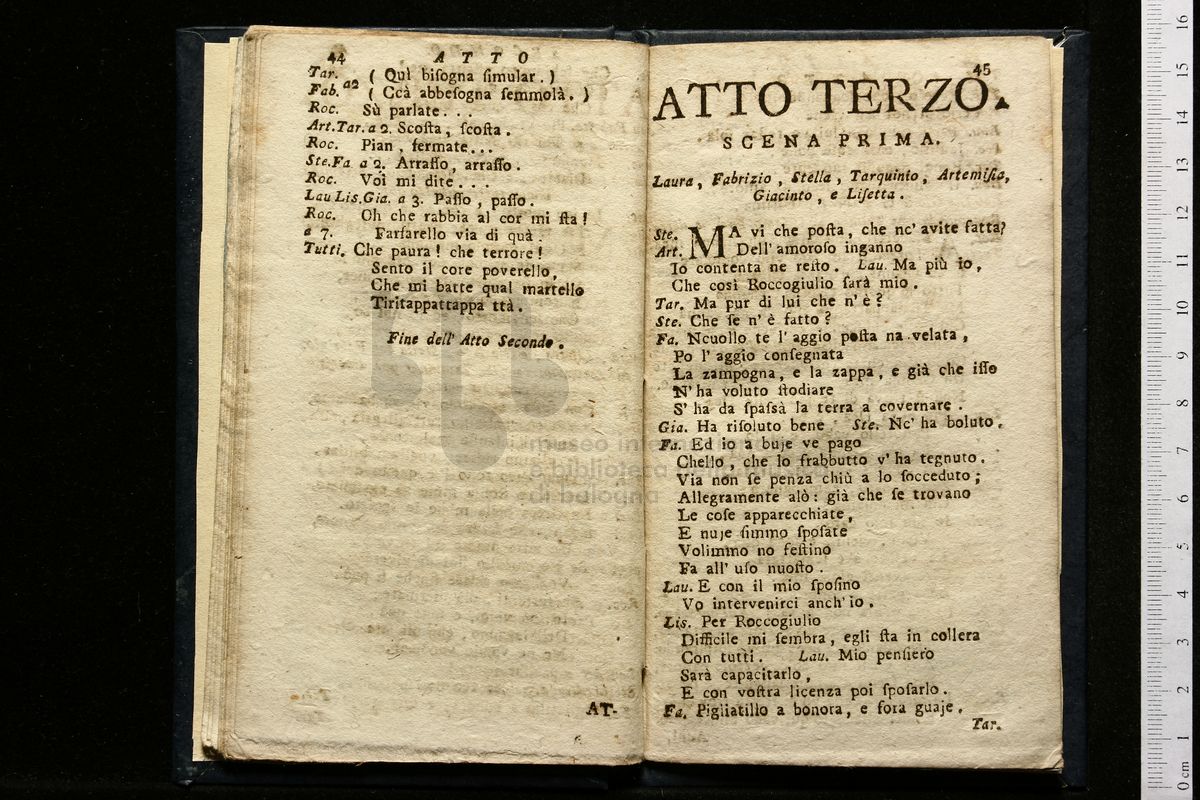 44 ATTO
Tar. ( Quì biſogna ſimular. )
Fab. a2 ( Ccà abbeſogna ſemmolà. )
Roc. Sù parlate. . .
Art.Tar. a 2. Scoſta, ſcoſta.
Roc. Pian, fermate...
Ste.Fa a 2. Arraſſo, arraſſo.
Roc. Voi mi dite. . .
Lau Lis.Gia. a 3. Paſſo, paſſo.
Roc. Oh che rabbia al cor mi ſta!
a 7. Farfarello via di quà.
Tutti. Che paura! che terrore!
Sento il core poverello,
Che mi batte qual martello
Tiritappattappa ttà.
Fine dell' Atto Secondo.
AT-
45
ATTO TERZO.
SCENA PRIMA.
Laura, Fabrizio, Stella, Tarquinio, Artemiſia,
Giacinto, e Liſetta.
Ste. MA vi che poſta, che nc' avite fatta?
Art. Dell' amoroſo inganno
Io contenta ne reſto. Lau. Ma più io,
Che così Roccogiulio ſarà mio.
Tar. Ma pur di lui che n' è?
Ste. Che ſe n' è fatto?
Fa. Ncuollo te l' aggio poſta na velata,
Po l' aggio conſegnata
La zampogna, e la zappa, e già che iſſo
N' ha voluto ſtodiare
S' ha da ſpaſsà la terra a covernare.
Gia. Ha riſoluto bene Ste. Nc' ha boluto.
Fa. Ed io a buje ve pago
Chello, che lo frabbutto v' ha tegnuto.
Via non ſe penza chiù a lo ſocceduto;
Allegramente alò: già che ſe trovano
Le coſe apparecchiate,
E nuje ſimmo ſpoſate
Volimmo no feſtino
Fa all' uſo nuoſto.
Lau. E con il mio ſpoſino
Vo intervenirci anch' io.
Lis. Per Roccogiulio
Difficile mi ſembra, egli ſta in collera
Con tutti. Lau. Mio penſiero
Sarà capacitarlo,
E con voſtra licenza poi ſpoſarlo.
Fa. Pigliatillo a bonora, e fora guaje.
Tar.
museo inter
e biblioteca
di bologna
16
15
14
13
12
11
10
9
8
7
6
5
4
3
2
1
0 cm